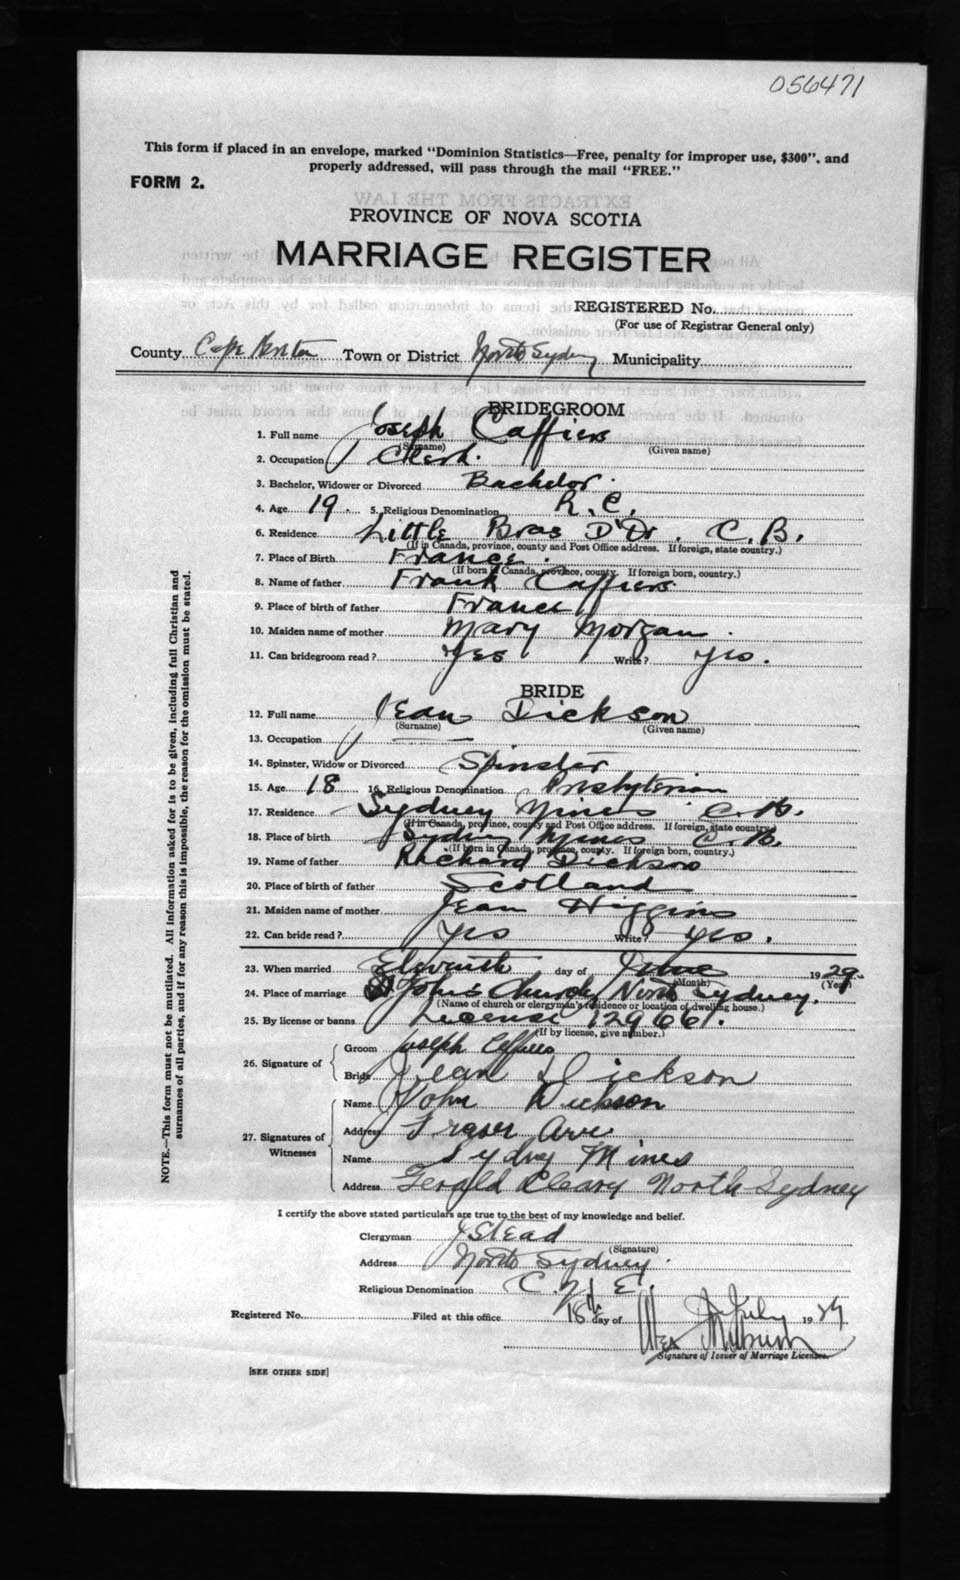 056471
This form if placed in an envelope, marked "Dominion Statistics—Free, penalty for improper use, $300", and
properly addressed, will pass through the mail "FREE."
FORM 2.
PROVINCE OF NOVA SCOTIA
MARRIAGE REGISTER
REGISTERED No.
(For use of Registrar General only)
County Cape Breton Town or District North Sydney Municipality
BRIDEGROOM
1. Full name Joseph Caffiers
(Surname) (Given name)
2. Occupation Clerk.
3. Bachelor, Widower or Divorced Bachelor.
4. Age 19. 5. Religious Denomination R. C.
6. Residence Little Bras D'Or. C. B.
(If in Canada, province, county and Post Office address. If foreign, state country.)
7. Place of Birth France.
(If born in Canada, province, county. If foreign born, country.)
8. Name of father Frank Caffiers
9. Place of birth of father France
10. Maiden name of mother Mary Morgan.
11. Can bridegroom read? Yes Write? yes.
BRIDE
12. Full name Jean Dickson
(Surname) (Given name)
13. Occupation —
14. Spinster, Widow or Divorced Spinster
15. Age 18 16. Religious Denomination Presbyterian
17. Residence Sydney Mines C. B.
(If in Canada, province, county and Post Office address. If foreign, state country.)
18. Place of birth Sydney Mines C. B.
(If born in Canada, province, county. If foreign born, country.)
19. Name of father Richard Dickson
20. Place of birth of father Scotland
21. Maiden name of mother Jean Higgins
22. Can bride read? yes Write? yes.
23. When married Eleventh day of June 1929.
(Month) (Year)
24. Place of marriage St John's Church, North Sydney.
(Name of church or clergyman's residence or location of dwelling house.)
25. By license or banns License 129661.
(If by license, give number.)
26. Signature of
Groom Joseph Caffiers
Bride Jean Dickson
27. Signatures of Witnesses
Name John Dickson
Address Fraser Ave
Name Sydney Mines
Address Gerald Cleary North Sydney
I certify the above stated particulars are true to the best of my knowledge and belief.
Clergyman Stead
(Signature)
Address North Sydney.
Religious Denomination C. of E.
Registered No. Filed at this office 18th day of July 1929
Signature of Issuer of Marriage Licenses
[SEE OTHER SIDE]
NOTE.—This form must not be mutilated. All information asked for is to be given, including full Christian and
surnames of all parties, and if for any reason this is impossible, the reason for the omission must be stated.